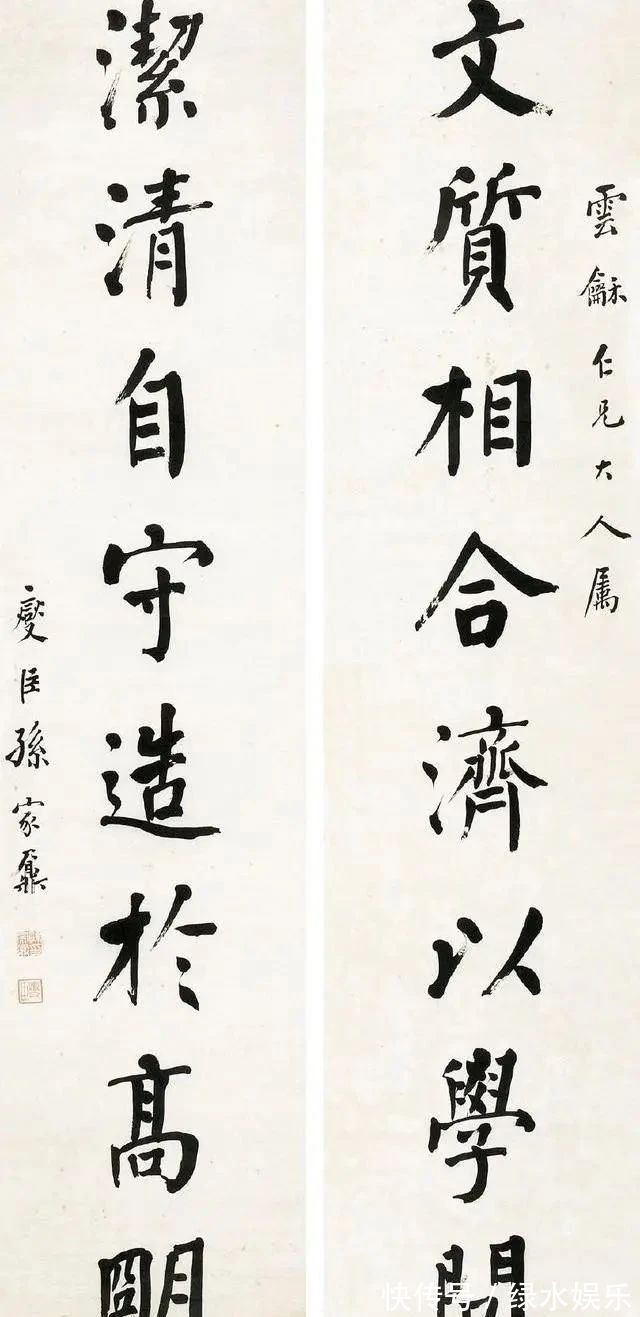 雲龢仁兄大人属
文質相合濟以學問
潔清自守造於高明
燮臣孫家鼐
快传号/绿水娱乐